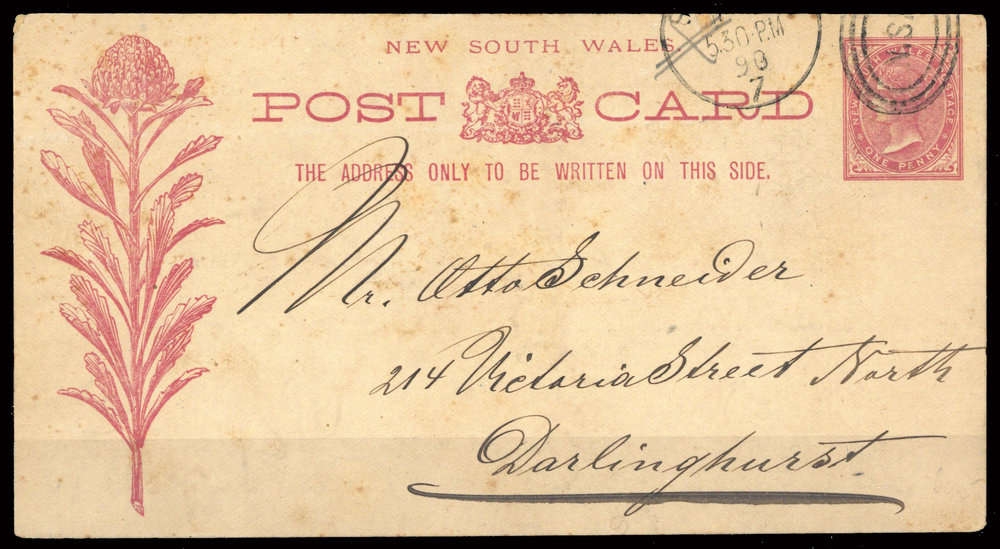 NEW SOUTH WALES.
POST CARD
THE ADDRESS ONLY TO BE WRITTEN ON THIS SIDE.
5.30·P.M
90
7
ONE PENNY
Mr. Otto Schneider
214 Victoria Street North
Darlinghurst